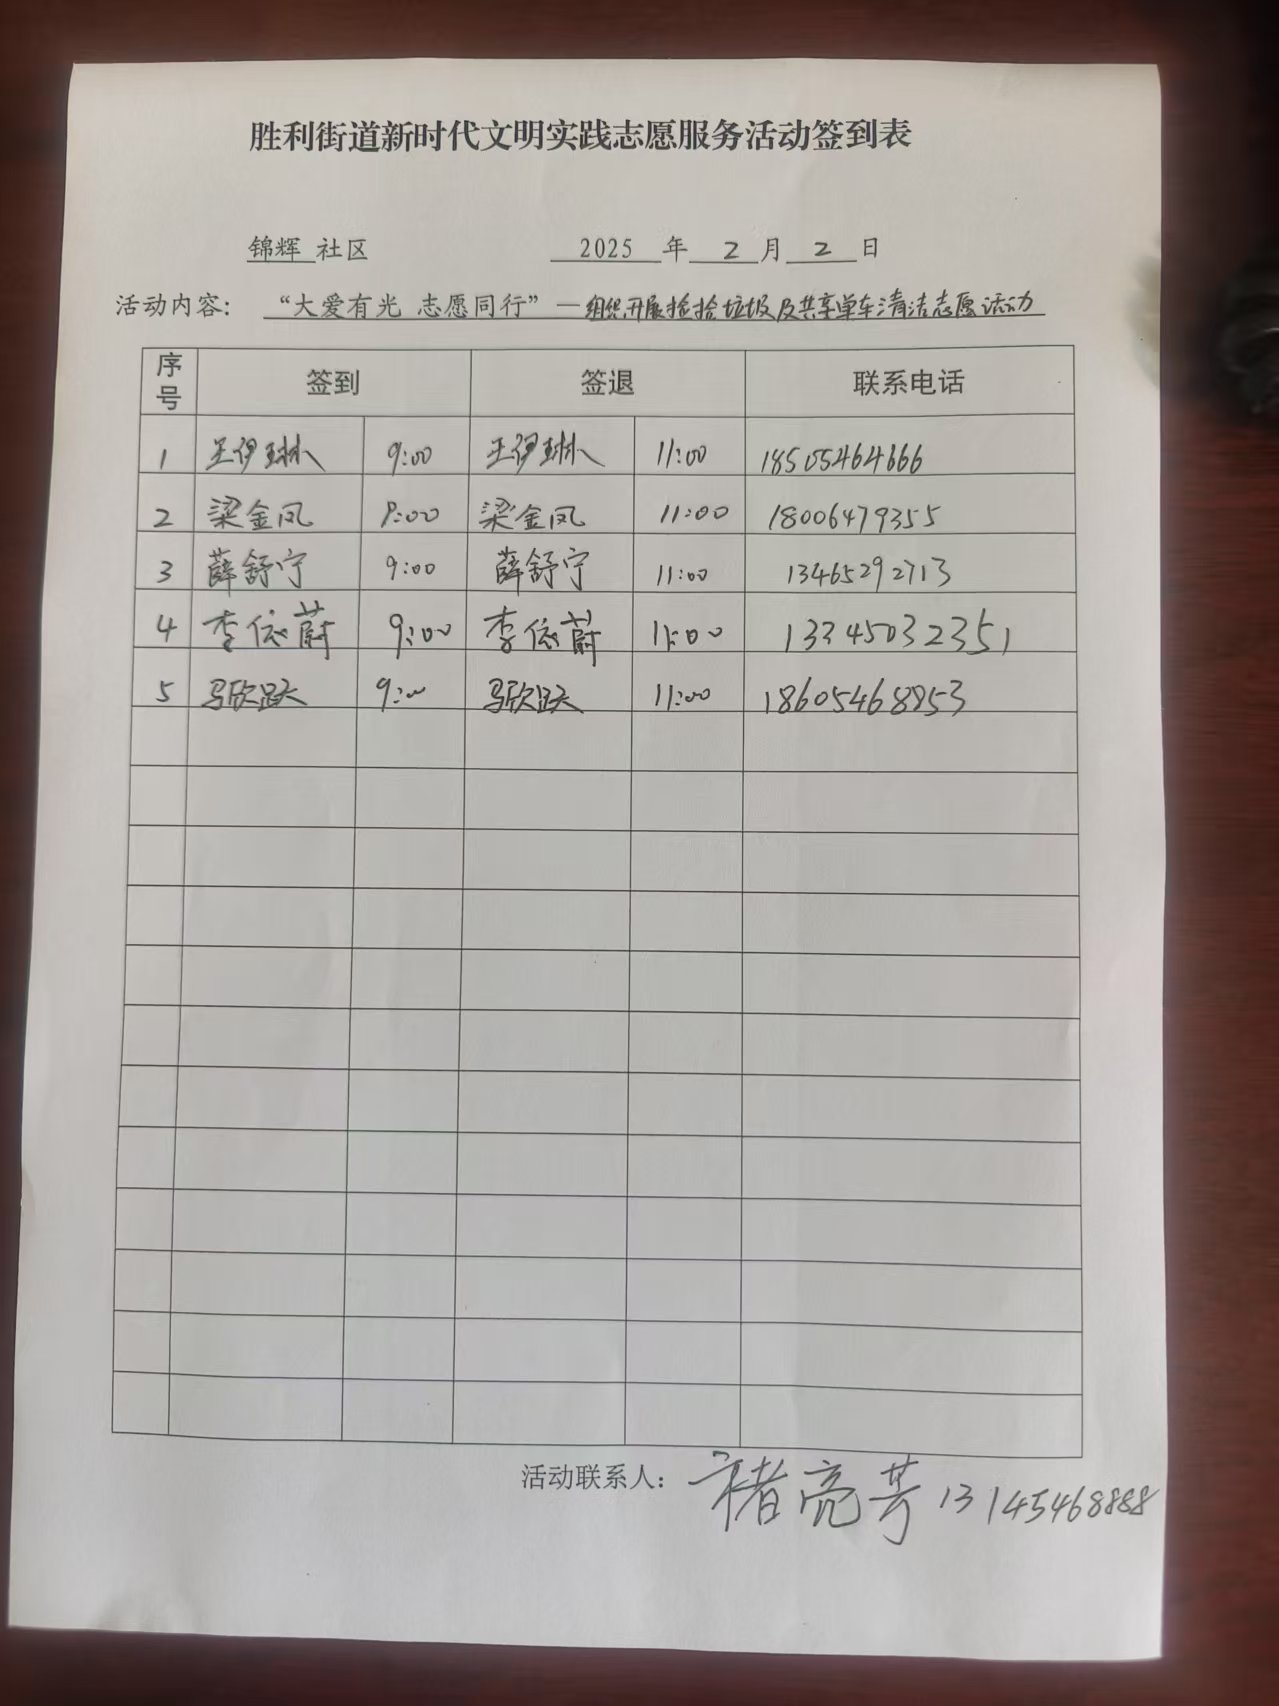 胜利街道新时代文明实践志愿服务活动签到表
锦辉 社区 2025 年 2 月 2 日
活动内容：“大爱有光 志愿同行”—组织开展捡拾垃圾及共享单车清洁志愿活动
序号 签到 签退 联系电话
1 王伊琳 9:00 王伊琳 11:00 18505464666
2 梁金凤 9:00 梁金凤 11:00 18006479355
3 薛舒宁 9:00 薛舒宁 11:00 13465292713
4 李依蔚 9:00 李依蔚 11:00 13345032351
5 马欣跃 9:00 马欣跃 11:00 18605468853
活动联系人：褚亮芳 13145468888